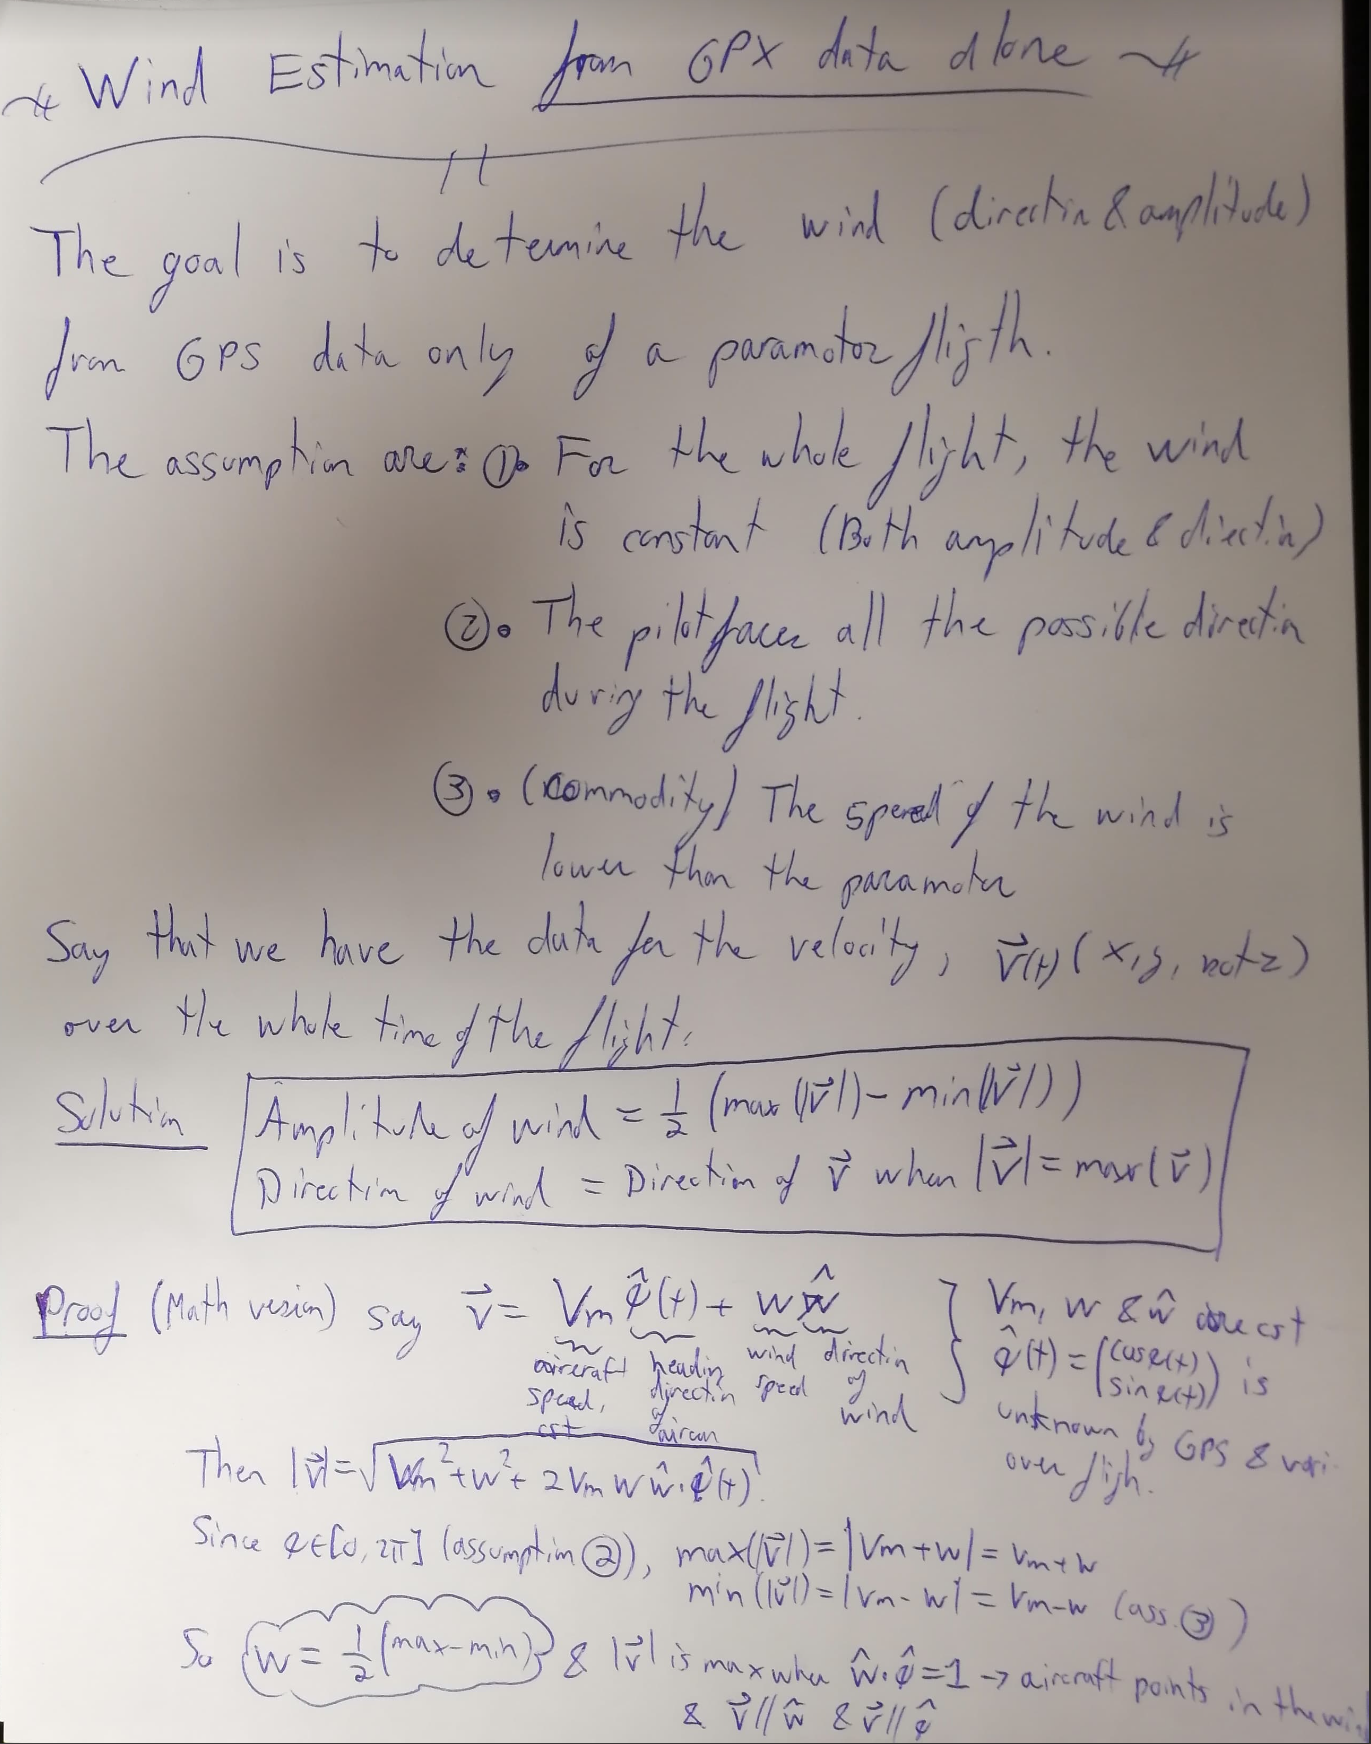 Wind Estimation from GPX data alone
The goal is to determine the wind (direction & amplitude)
from GPS data only of a paramotor fligth.
The assumption are: ①. For the whole flight, the wind
is constant (Both amplitude & direction)
②. The pilot faces all the possible direction
during the flight.
③. (commodity) The speed of the wind is
lower than the paramotor
Say that we have the data for the velocity, v⃗(t) (x,y, not z)
over the whole time of the flight.
Solution Amplitude of wind = 1/2 (max(|v⃗|) - min(|v⃗|))
Direction of wind = Direction of v⃗ when |v⃗| = max(v⃗)
Proof (Math version) say v⃗ = Vm φ̂(t) + w ŵ } Vm, w & ŵ are cst
aircraft speed, cst heading direction of aircan wind speed direction of wind
φ̂(t) = (cosφ(t) sinφ(t)) is
unknown by GPS & vari
over fligh.
Then |v⃗| = √(Vm² + w² + 2 Vm w ŵ·φ̂(t))
Since φ∈[0, 2π] (assumption ②), max(|v⃗|) = |Vm + w| = Vm + w
min(|v⃗|) = |Vm - w| = Vm - w (ass. ③)
So w = 1/2 (max-min) & |v⃗| is max when ŵ·φ̂ = 1 → aircraft points in the wi
& v⃗ // ŵ & v⃗ // φ̂